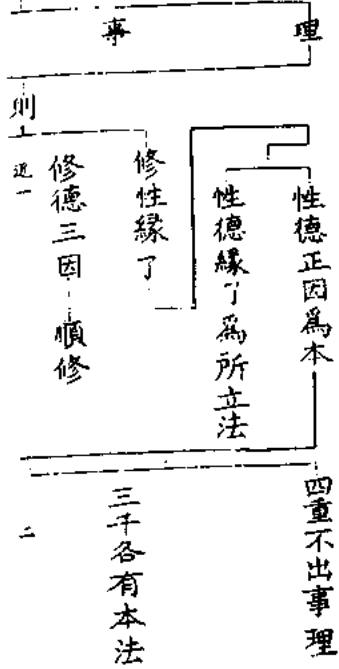 理
事
性德正因爲本
性德緣了爲所立法
修性緣了
則
近一
修德三因
順修
四重不出事理
三千各有本法
二